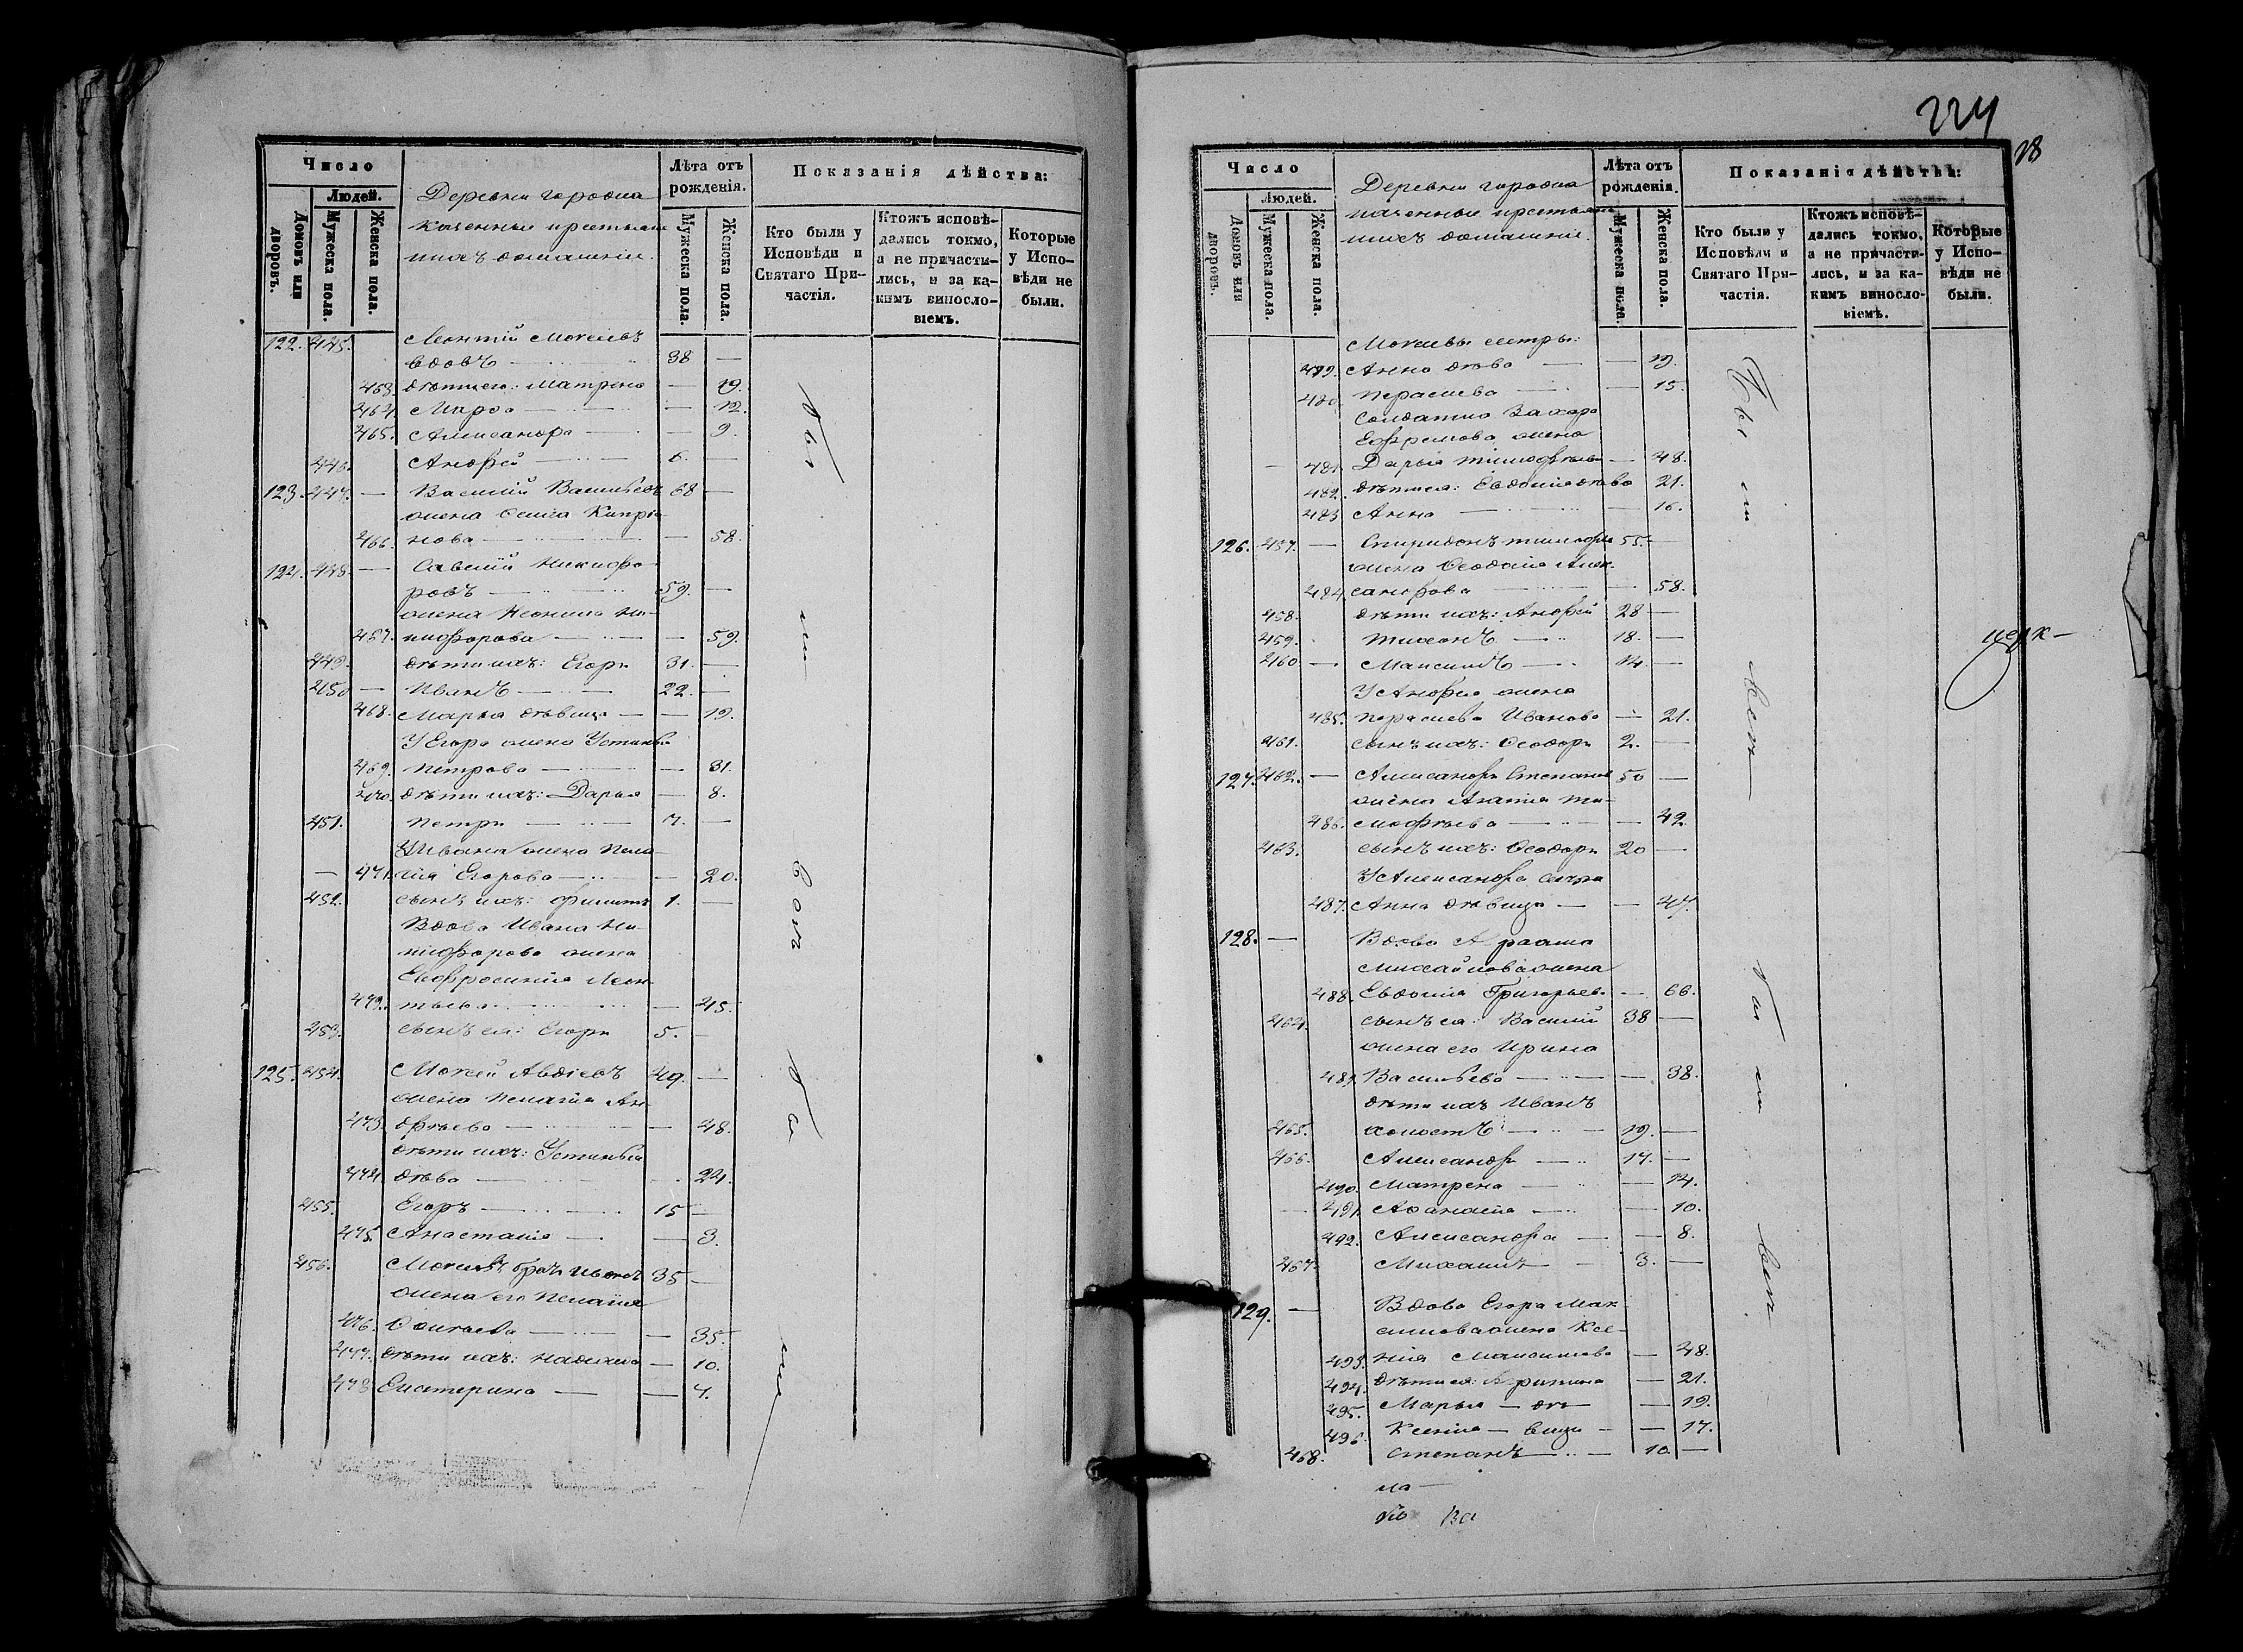 Число
Людей.
Домовъ или дворовъ.
Мужеска пола.
Женска пола.
Деревни Городна
казенныя крестьяне
ихъ домашніи.
Лѣта отъ рожденія.
Мужеска пола.
Женска пола.
Показанія дѣйства:
Кто были у Исповѣди и Святаго Причастія.
Ктожъ исповѣдались токмо, а не причастились, и за какимъ винословіемъ.
Которые у Исповѣди не были.
122. 445. Леонтій Моѵсеевъ
вдовъ 38 —
463. дѣти его: Матрена — 19.
464. Марѳа — 12.
465. Александра — 9.
446. Андрей 6. —
123. 447. — Василий Васильевъ 68 —
жена Ксенія Кипріа-
466. нова — 58.
124. 448. — Савелій Никифо-
ровъ 59. —
жена Неонила Ни-
467. кифорова — 59.
449. дѣти ихъ: Егоръ 31. —
450 — Иванъ 22. —
468. Марья дѣвица — 19.
У Егора жена Устинья
469. Петрова — 31.
470. дѣти ихъ: Дарья — 8.
451. Петръ 7. —
У Ивана жена Пела-
— 471. гія Егорова — 20.
452. сынъ ихъ: Филиппъ 1. —
Вдова Ивана Ни-
кифорова жена
Евфросинія Леон-
472. тьева — 45.
453. сынъ ея: Егоръ 5. —
125. 454. Моѵсей Авдіевъ 49. —
жена Пелагія Ан-
473. дреева — 48.
дѣти ихъ: Устинья
474. дѣва — 24.
455. Егоръ 15 —
475. Анастасія — 3.
456. Моѵсеевъ братъ Иванъ 35 —
жена его Пелагія
476. — 35.
477. дѣти ихъ: Надежда — 10.
478 Екатерина — 4.
Бы ли
224
18
Число
Людей.
Домовъ или дворовъ.
Мужеска пола.
Женска пола.
Деревни Городна
казенныя крестьяне
ихъ домашніи.
Лѣта отъ рожденія.
Мужеска пола.
Женска пола.
Показанія дѣйства:
Кто были у Исповѣди и Святаго Причастія.
Ктожъ исповѣдались токмо, а не причастились, и за какимъ винословіемъ.
Которые у Исповѣди не были.
Моѵсеевы сестры:
479. Анна дѣва — 19.
480. Параскева — 15.
Солдатка Захара
Ефремова жена
— 481. Дарья Тимофѣева — 48.
482. дѣти ея: Евдокія дѣва 21.
483 Анна — 16.
126. 457. — Спиридонъ 55. —
жена Ѳеодосія Алек-
484. сандрова — 58.
458. дѣти ихъ: Андрей 28 —
459. Тихонъ 18. —
460 — Максимъ 14. —
У Андрея жена
485. Параскева Иванова — 21.
461. сынъ ихъ: Ѳеодоръ 2. —
127. 462. — Александръ Степановъ 50 —
жена Агапія Ти-
486. мофѣева — 42.
463. сынъ ихъ: Ѳеодоръ 20 —
У Александра сестра
487. Анна дѣвица — 47.
128. — Вдова Абрама
Михайлова жена
488. Евдокія Григорьева — 66.
464. сынъ ея: Василий 38 —
жена его Ирина
489. Васильева — 38.
дѣти ихъ Иванъ
465. холостъ 19. —
466. Александръ 17. —
490. Матрена — 14.
491. Аѳанасія — 10.
492. Александра — 8.
467. Михаилъ 3. —
129. — Вдова Егора Мак-
симова жена Ксе-
493. нія Максимова — 48.
494. дѣти ея: — 21.
495. Марья — дѣ — 19.
496. Ксенія — вицы — 17.
468. Степанъ 10. —
Бы ли
церк —